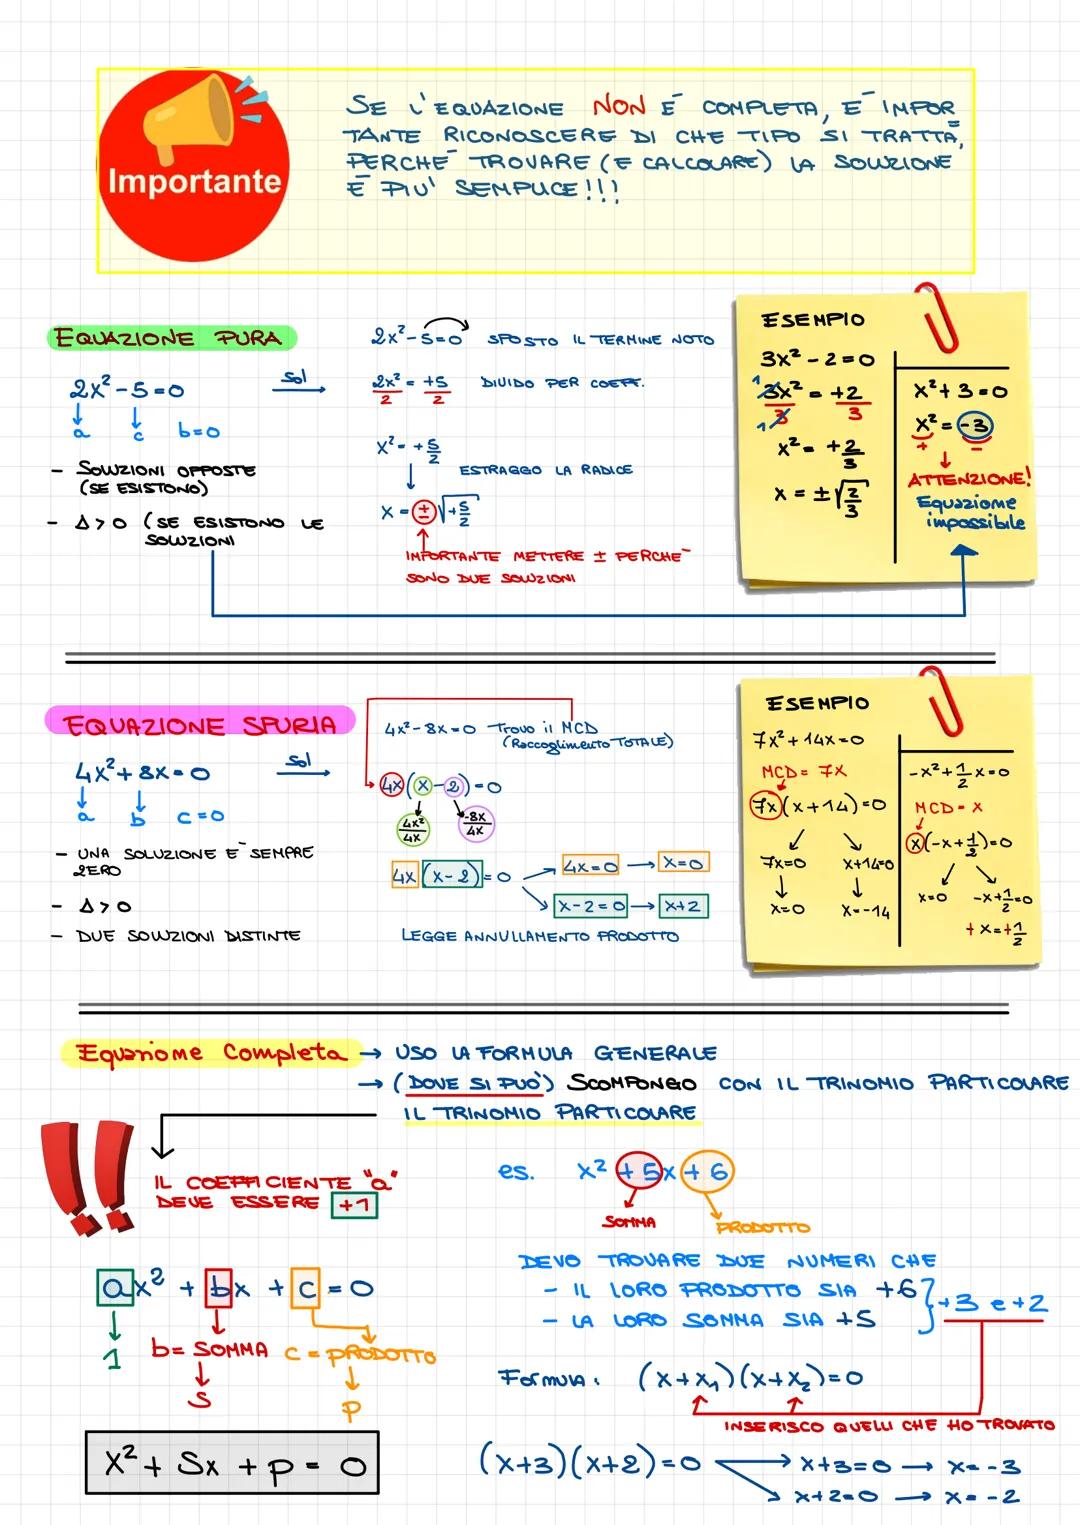 Importante
SE L'EQUAZIONE NON È COMPLETA, È IMPOR
TANTE RICONOSCERE DI CHE TIPO SI TRATTA,
PERCHÈ TROVARE (E CALCOLARE) LA SOLUZIONE
È PIU' SEMPLICE!!!
EQUAZIONE PURA
2x²-5=0
sol
a c b=0
- SOLUZIONI OPPOSTE
(SE ESISTONO)
- Δ>0 (SE ESISTONO LE
SOLUZIONI
2x²-5=0 SPOSTO IL TERMINE NOTO
2x²/2 = +5/2 DIVIDO PER COEFF.
x²=+5/2
ESTRAGGO LA RADICE
x=±√+5/2
IMPORTANTE METTERE ± PERCHÈ
SONO DUE SOLUZIONI
ESEMPIO
3x²-2=0
¹3x²/¹3 = +2/3
x²=+2/3
x=±√2/3
x²+3=0
x²=-3
+ -
ATTENZIONE!
Equazione
impossibile
EQUAZIONE SPURIA
4x²+8x=0
sol
a b c=0
- UNA SOLUZIONE È SEMPRE
ZERO
- Δ>0
- DUE SOLUZIONI DISTINTE
4x²-8x=0 Trovo il MCD
(Raccoglimento TOTALE)
4x(x-2)=0
4x²/4x -8x/4x
4x(x-2)=0
4x=0 → x=0
x-2=0 → x+2
LEGGE ANNULLAMENTO PRODOTTO
ESEMPIO
7x²+14x=0
MCD= 7x
7x(x+14)=0
7x=0 x+14=0
x=0 x=-14
-x²+1/2x=0
MCD=x
x(-x+1/2)=0
x=0 -x+1/2=0
+x=+1/2
Equazione Completa → USO LA FORMULA GENERALE
→ (DOVE SI PUÒ) SCOMPONGO CON IL TRINOMIO PARTICOLARE
IL TRINOMIO PARTICOLARE
!!
IL COEFFICIENTE "a"
DEVE ESSERE +1
ax²+bx+c=0
1 b= SOMMA c= PRODOTTO
S P
x²+Sx+p=0
es. x²+5x+6
SOMMA PRODOTTO
DEVO TROVARE DUE NUMERI CHE
- IL LORO PRODOTTO SIA +6
- LA LORO SOMMA SIA +5
} +3 e +2
Formula: (x+x₁)(x+x₂)=0
INSERISCO QUELLI CHE HO TROVATO
(x+3)(x+2)=0 → x+3=0 → x=-3
→ x+2=0 → x=-2